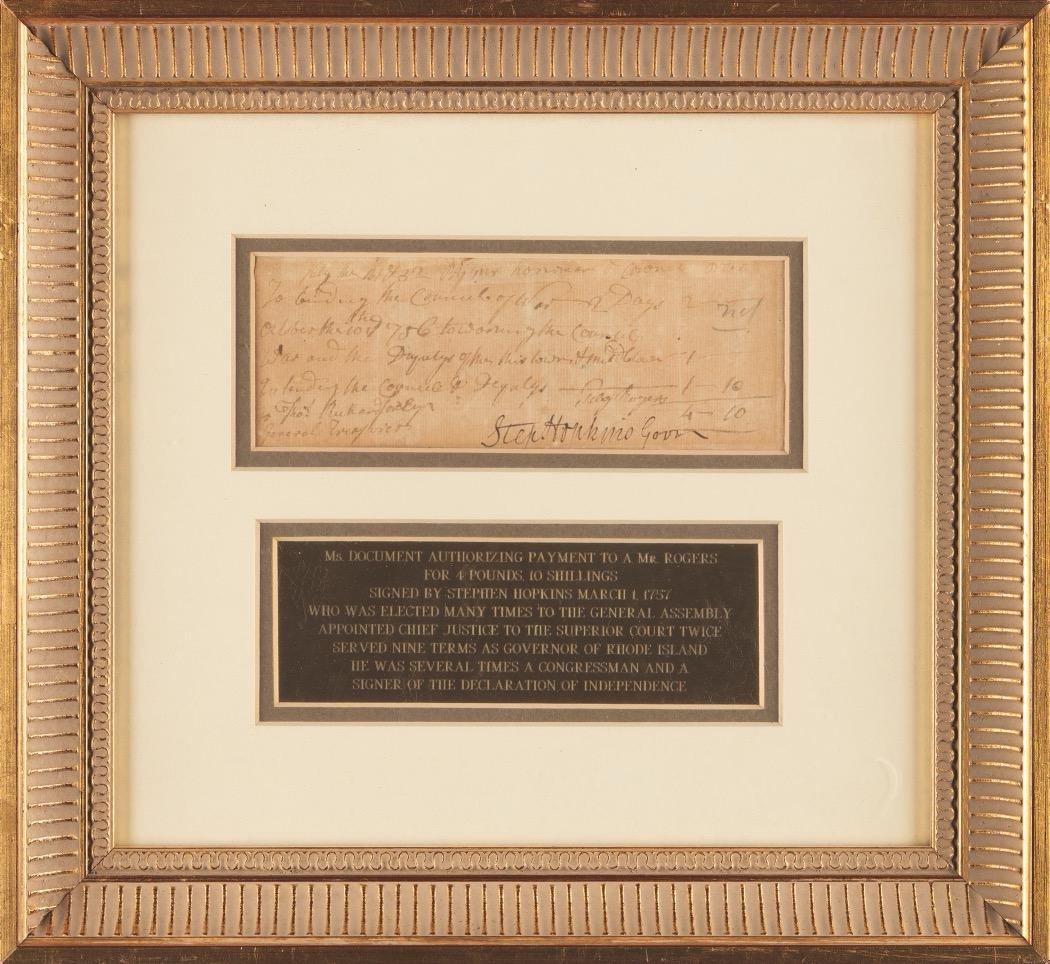 To tending the Councel of War 2 Days 2
the
1756 to warning the Councel
War and the Deputys of this town 1
To tending the Councel & Deputys 1 10
Rogers
4 10
Thos Richardson Esqr
General Treasurer
Step Hopkins Govr
Ms. DOCUMENT AUTHORIZING PAYMENT TO A MR. ROGERS
FOR 4 POUNDS, 10 SHILLINGS
SIGNED BY STEPHEN HOPKINS MARCH 1, 1757
WHO WAS ELECTED MANY TIMES TO THE GENERAL ASSEMBLY
APPOINTED CHIEF JUSTICE TO THE SUPERIOR COURT TWICE
SERVED NINE TERMS AS GOVERNOR OF RHODE ISLAND
HE WAS SEVERAL TIMES A CONGRESSMAN AND A
SIGNER OF THE DECLARATION OF INDEPENDENCE